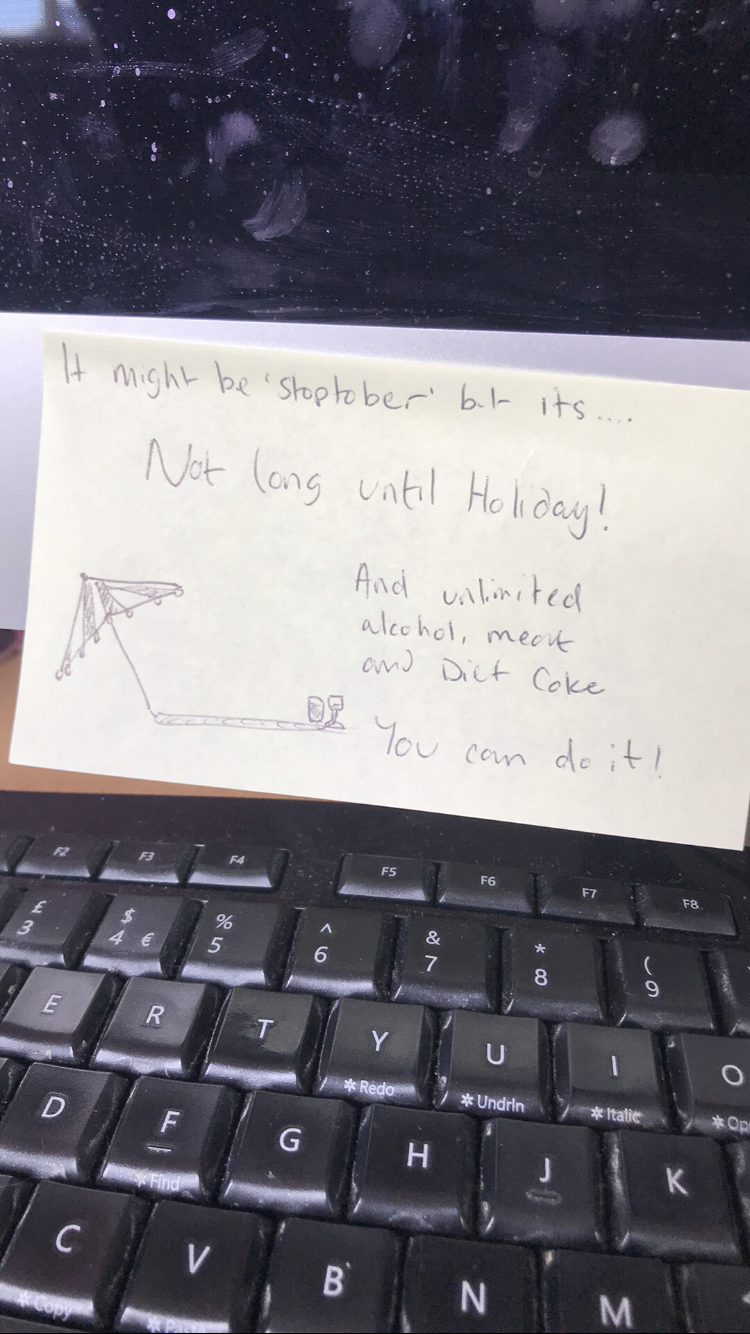 It might be 'stoptober' but its....
Not long until Holiday!
And unlimited
alcohol, meat
and Diet Coke
You can do it!
F2 F3 F4 F5 F6 F7 F8
£ $ % ^ & * (
3 4 € 5 6 7 8 9
E R T Y U I O
Redo Undrln Italic
D F G H J K
Find
C V B N M
Copy